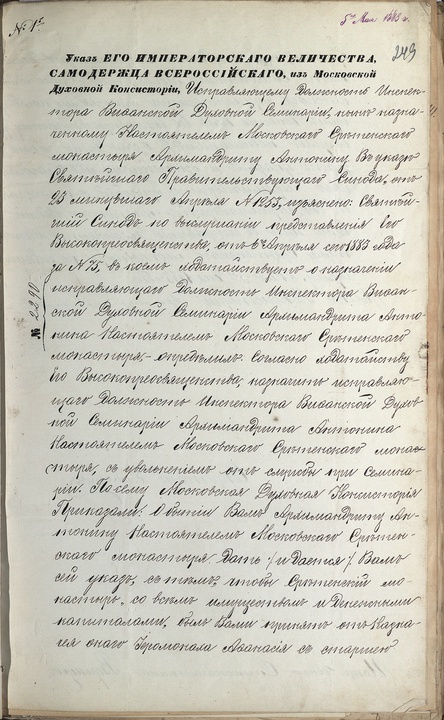 № 1й
5го Мая 1883 г.
249
Указъ ЕГО ИМПЕРАТОРСКАГО ВЕЛИЧЕСТВА,
САМОДЕРЖЦА ВСЕРОССІЙСКАГО, изъ Московской
Духовной Консисторіи, Исправляющему Должность Инспек-
тора Виѳанской Духовной Семинаріи, нынѣ назна-
ченному Настоятелемъ Московскаго Срѣтенскаго
монастыря Архимандриту Антонину. Въ указѣ
Святѣйшаго Правительствующаго Синода, отъ
23 минувшаго Апрѣля № 1253, изъяснено: Святѣй-
шій Синодъ по выслушаніи представленія Его
Высокопреосвященства, отъ 6го Апрѣля сего 1883 года
за № 75, въ коемъ ходатайствуетъ о назначеніи
исправляющаго Должность Инспектора Виѳан-
ской Духовной Семинаріи Архимандрита Анто-
нина Настоятелемъ Московскаго Срѣтенскаго
монастыря,- опредѣлилъ: согласно ходатайству
Его Высокопреосвященства, назначить исправляю-
щаго Должность Инспектора Виѳанской Духов-
ной Семинаріи Архимандрита Антонина
Настоятелемъ Московскаго Срѣтенскаго монас-
тыря, съ увольненіемъ отъ службы при Семина-
ріи. По сему Московская Духовная Консисторія
Приказали: О бытіи Вамъ Архимандриту Ан-
тонину Настоятелемъ Московскаго Срѣтен-
скаго монастыря Дать /: и дается :/ Вамъ
сей указъ, съ тѣмъ, чтобы Срѣтенскій мо-
настырь, со всѣмъ имуществомъ и Денежными
капиталами, былъ Вами принятъ отъ Казна-
чея онаго Іеромонаха Аѳанасія съ старшею
№ 2290